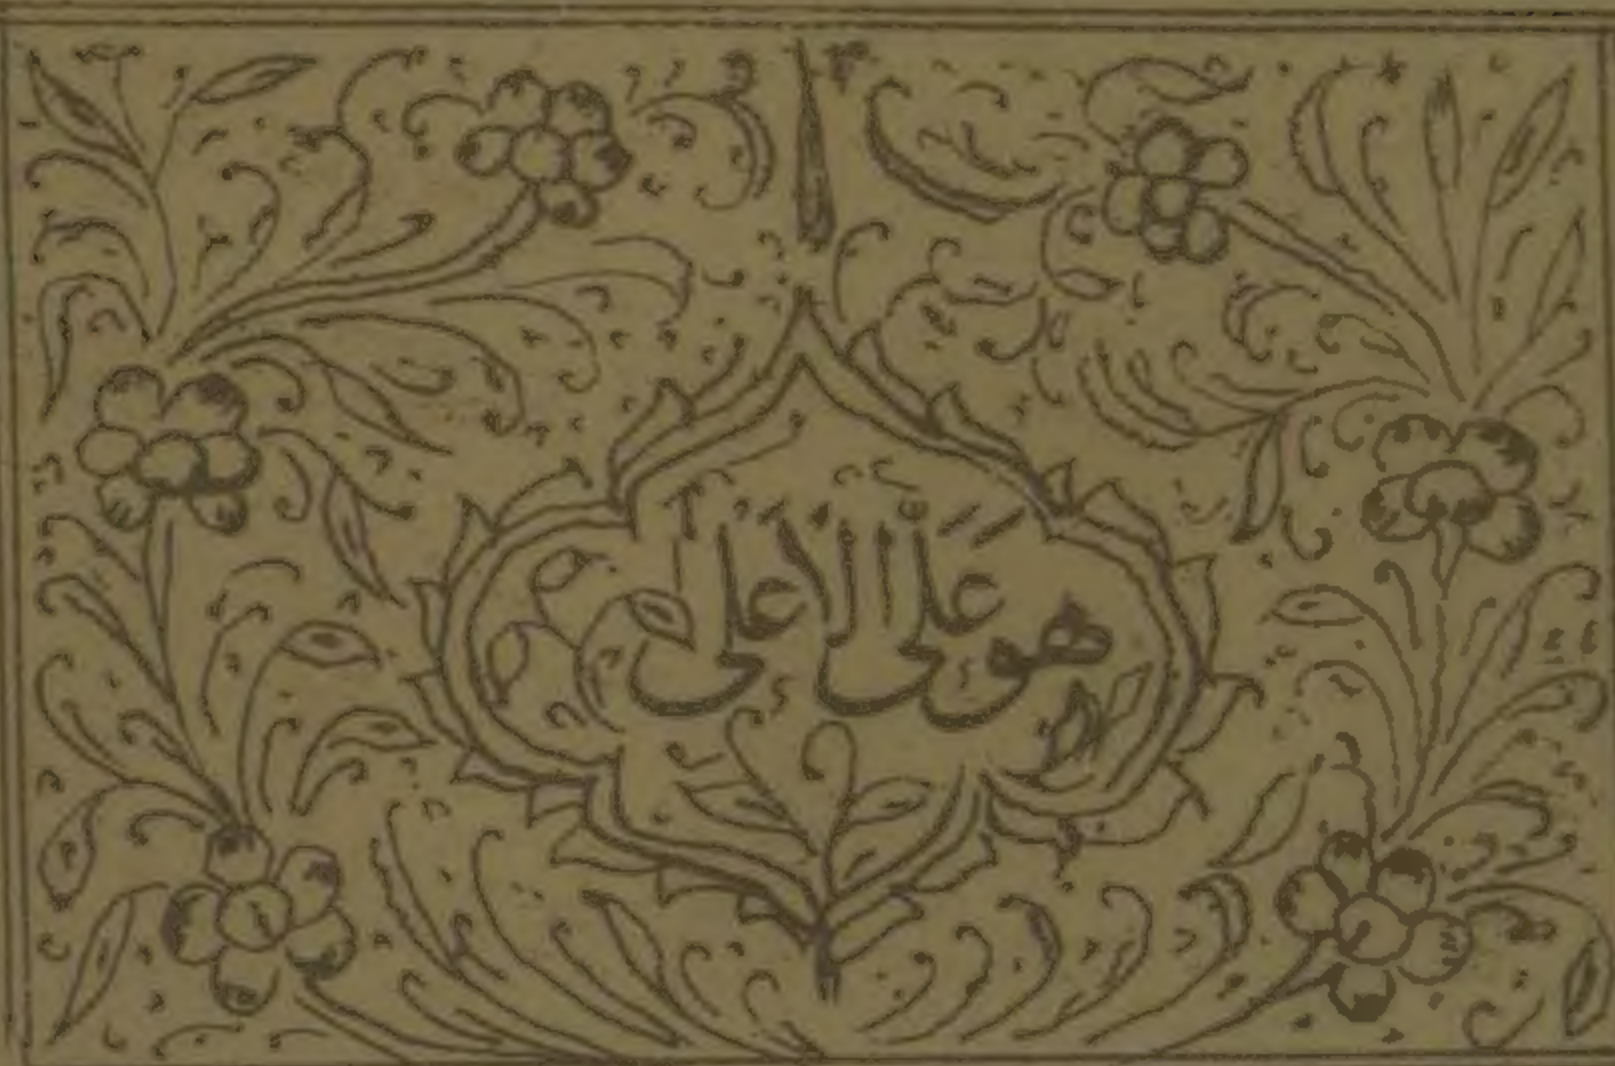 هو علی الاعلی